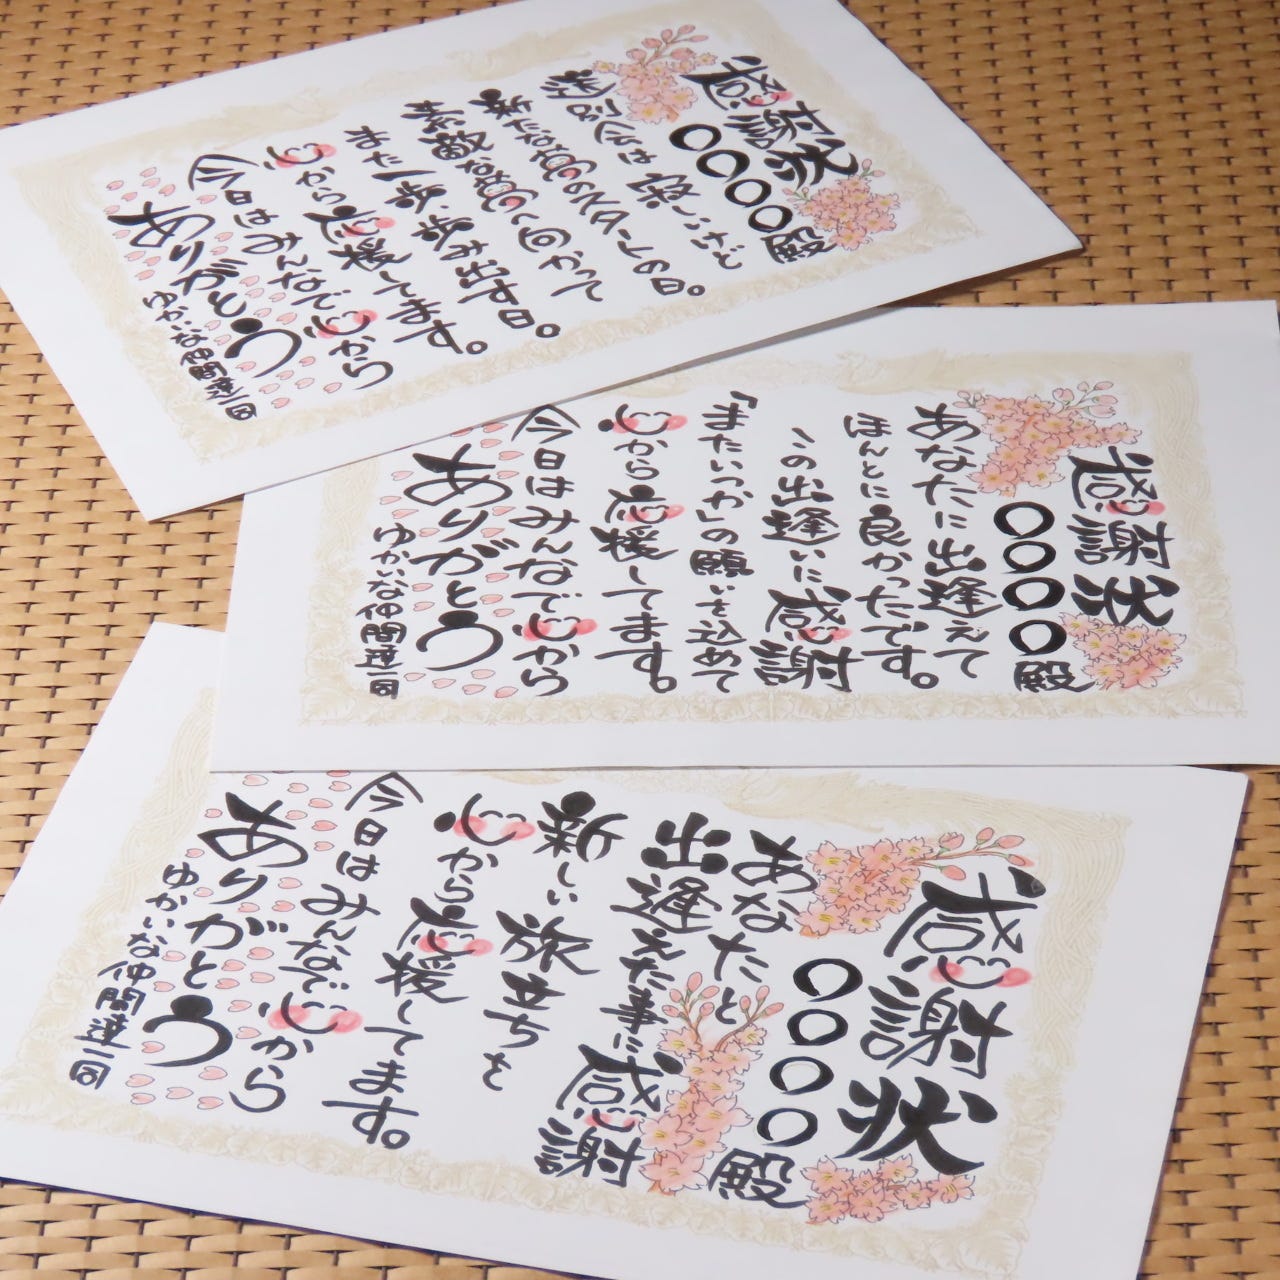 感謝状
〇〇〇〇殿
送別会は寂しいけど
新たな夢のスタートの日。
素敵な夢へ向かって
また一歩歩み出す日。
心から応援してます。
今日はみんなで心から
ありがとう
ゆかいな仲間達一同
感謝状
〇〇〇〇殿
あなたに出逢えて
ほんとに良かったです。
この出逢いに感謝
「またいつか」の願いを込めて
心から応援してます。
今日はみんなで心から
ありがとう
ゆかいな仲間達一同
感謝状
〇〇〇〇殿
あなたと
出逢えた事に感謝
新しい旅立ちを
心から応援してます。
今日はみんなで心から
ありがとう
ゆかいな仲間達一同